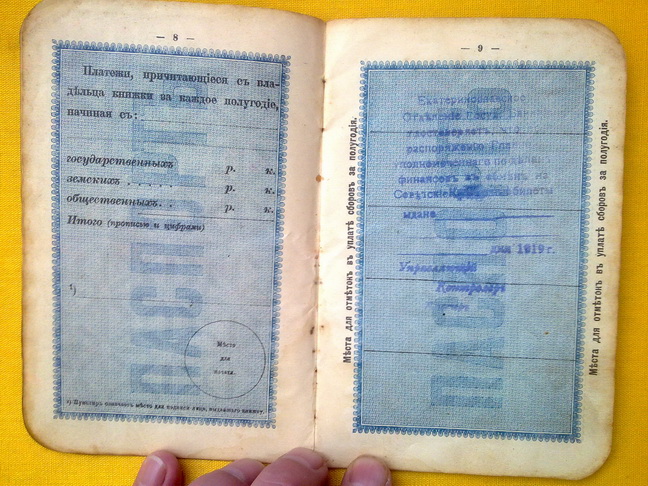 — 8 —
Платежи, причитающіеся съ вла-
дѣльца книжки за каждое полугодіе,
начиная съ:
государственныхъ р. к.
земскихъ . . . . . р. к.
общественныхъ. . р. к.
Итого (прописью и цифрами)
¹)
Мѣсто
для
печати.
¹) Пунктиръ означаетъ мѣсто для подписи лица, выдавшаго книжку.
ПАСПОРТЪ
— 9 —
Екатеринославское
Отдѣленіе Госуд.
удостовѣряетъ, что
распоряженію
уполномоченнаго по дѣламъ
финансовъ въ обмѣнъ на
Совѣтскіе
выдано
дня 1919 г.
Управляющій
Контролеръ
ПАСПОРТЪ
Мѣста для отмѣтокъ въ уплатѣ сборовъ за полугодія.
Мѣста для отмѣтокъ въ уплатѣ сборовъ за полугодія.